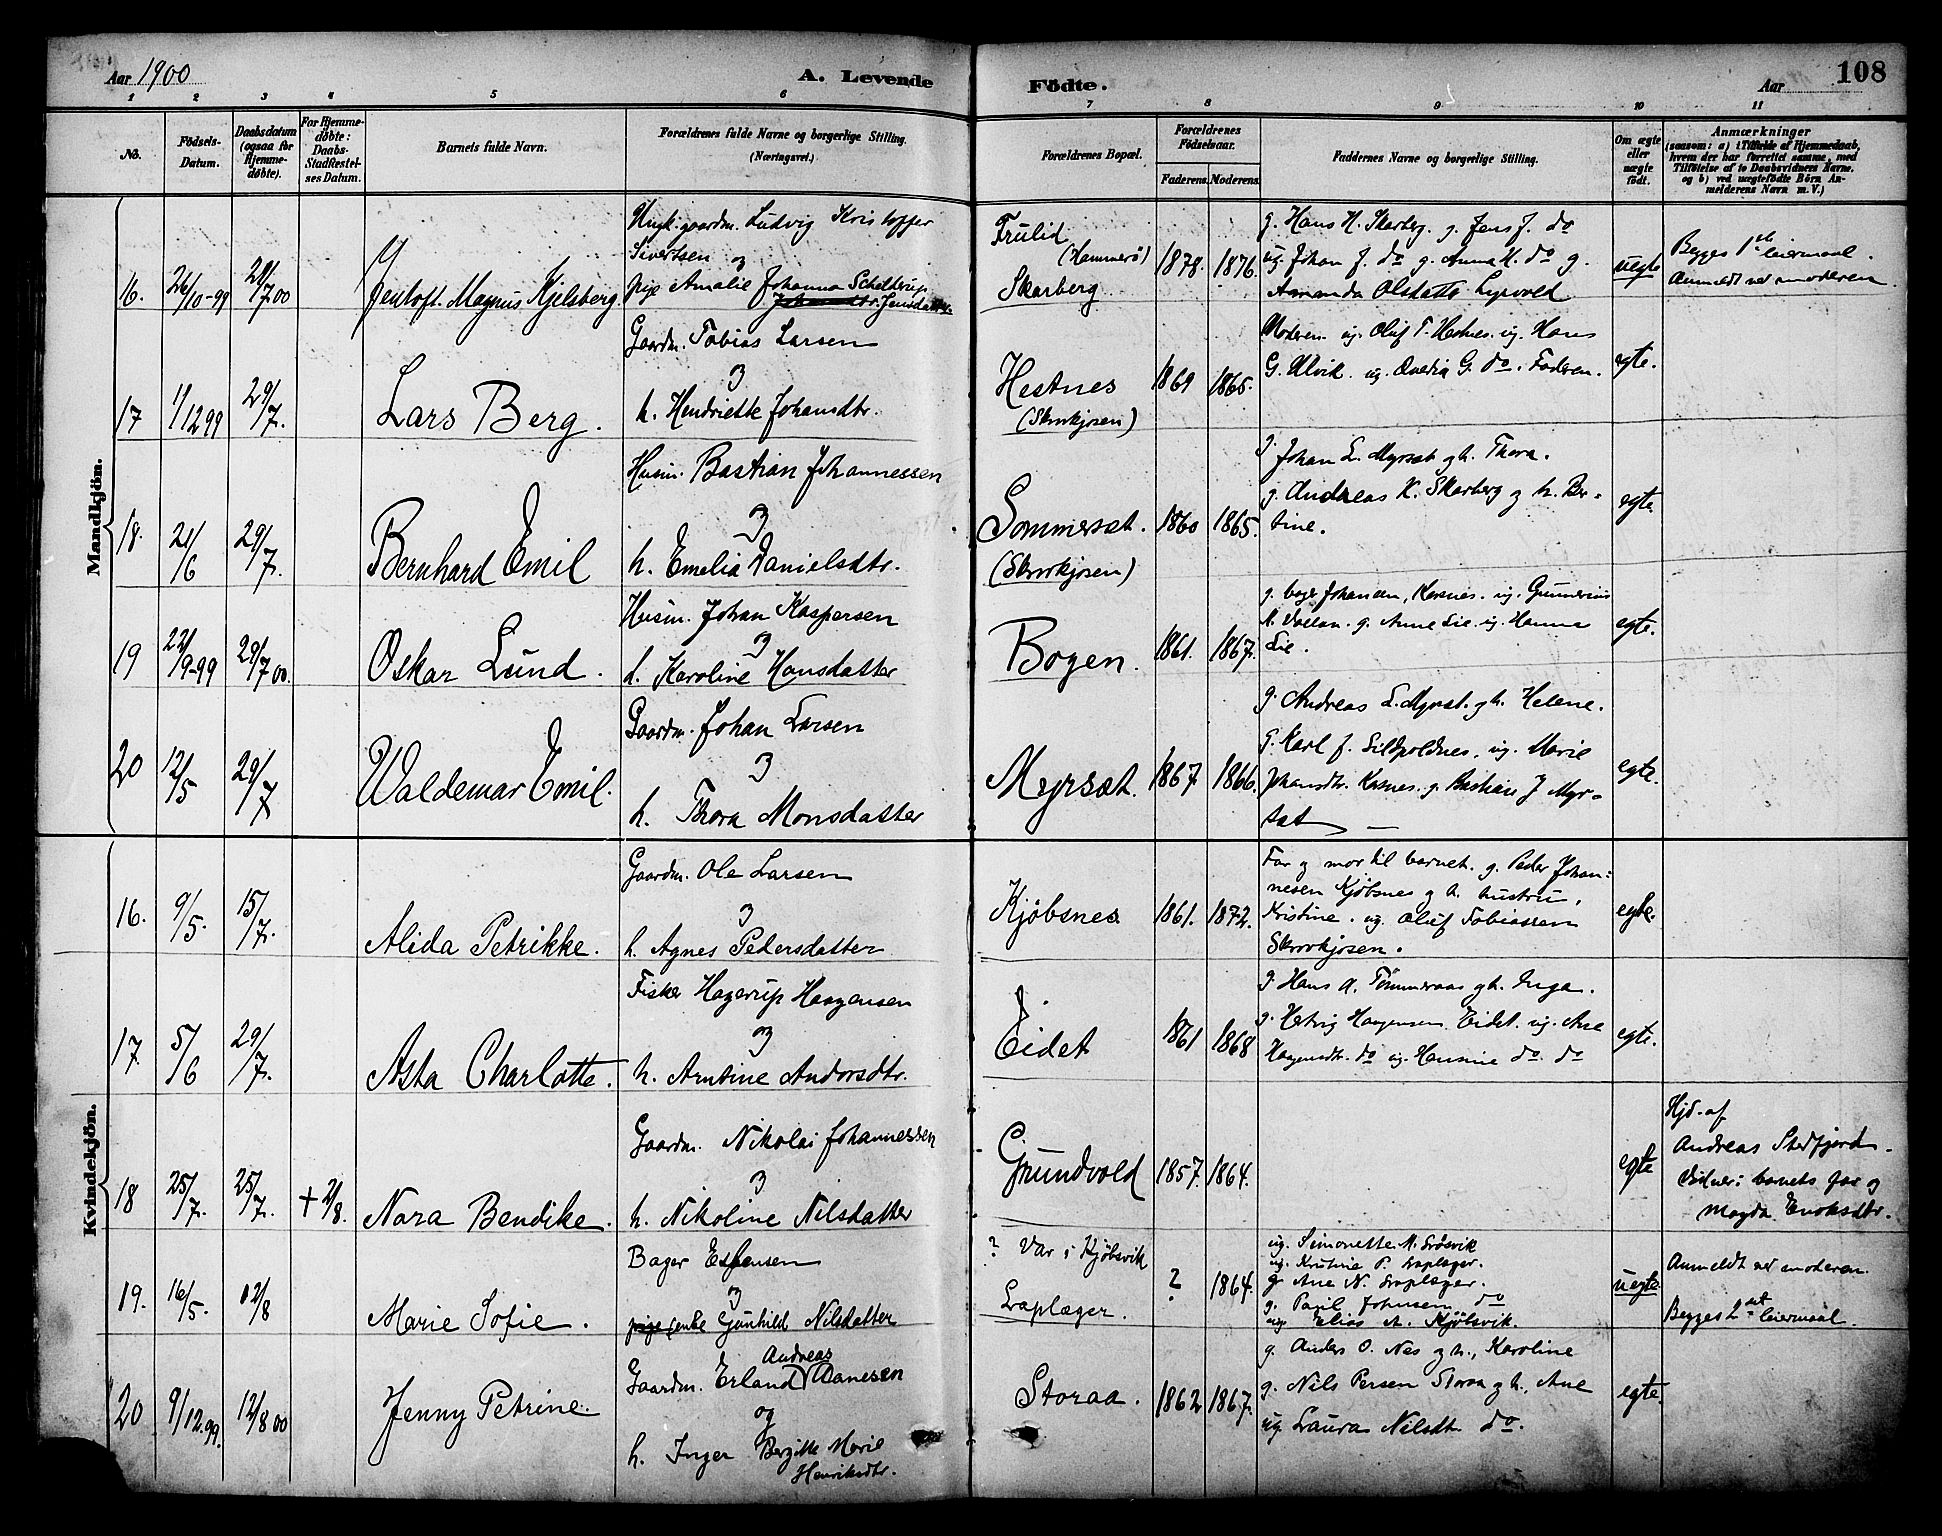 Aar 1900
A. Levende
Födte.
Aar
108
1 2 3 4 5 6 7 8 9 10 11
No.
Födsels-
Datum.
Daabsdatum
(ogsaa for
Hjemme-
döbte).
For Hjemme-
döbte:
Daabs-
Stadfæstel-
ses Datum.
Barnets fulde Navn.
Forældrenes fulde Navne og borgerlige Stilling.
(Næringsvei.)
Forældrenes Bopæl.
Forældrenes
Födselsaar.
Faderens. Moderens.
Faddernes Navne og borgerlige Stilling.
Om ægte
eller
uægte
födt.
Anmærkninger
(saasom: a) i Tilfælde af Hjemmedaab,
hvem der har forrettet samme, med
Tilföielse af to Daabsvidners Navne,
og b) ved uægtefödte Börn An-
melderens Navn m. V.)
Mandkjön.
16. 26/10-99 29/7 00
Jentoft Magnus Kjelsberg
Ungk. gaardm. Ludvig Kristoffer
Sivertsen og
pige Amalie Johanna Schelderup
Jensdatter
Trulid
(Hammerø)
Skarberg
1878. 1876.
g. Hans H. Skarberg. g. Jens J. do
ug. Johan J. do g. Anna H. do g.
Amanda Olsdatter
uegte
Begges 1ste leiermaal.
Anmeldt ved moderen.
17 1/12 99 29/7.
Lars Berg.
Gaardm. Tobias Larsen
og
h. Henriette Johansdtr.
Hestnes
(Skrovkjosen)
1869 1865.
Moderen ug. Oluf T. Hestnes. ug. Hans
G. Ulvik. ug. Ovedia G. do. Faderen.
egte.
18. 21/6 29/7.
Bernhard Emil
Husm. Bastian Johannessen
og
h. Emelia Danielsdtr.
Sommerset.
(Skrovkjosen)
1860 1865.
g. Johan L. Myrsæt g h. Thora.
g. Andreas K. Skarberg g h. Ber-
tine.
egte.
19 22/9-99 29/7 00.
Oskar Lund.
Husm. Johan Kaspersen
og
h. Karoline Hansdatter
Bogen.
1861. 1867.
Johansen, Korsnes. ug. Gunnerius
g. Anne Lie. ug. Hanna
Lie.
egte.
20 12/5 29/7
Waldemar Emil.
Gaardm. Johan Larsen
og
h. Thora Monsdatter
Myrsæt.
1867 1866.
g. Andreas L. Myrsæt. g h. Helene.
g. Karl J. ug. Marie
Johansdtr. Korsnes. g. Bastian J Myr-
sæt
egte.
Kvindekjön.
16. 9/5. 15/7.
Alida Petrikke.
Gaardm. Ole Larsen
og
h. Agnes Pedersdatter
Kjøbsnes
1861. 1872.
Far g mor til barnet. g. Peder Johan-
nesen Kjøbsnes g h. hustru,
Kristine. ug. Oluf Tobiassen
Skrovkjosen.
egte.
17. 5/6 29/7.
Asta Charlotte.
Fisker Hagerup Haagensen
og
h. Arntine Andorsdtr.
Eidet
1861 1868
g. Hans A. Tømmeraas g h. Inga.
g. Hetvig Haagensen Eidet. ug. Ane
Haagensdt. do ug. Hansine do. do
egte.
18 25/7. 25/7. + 2/8.
Nora Bendike.
Gaardm. Nikolai Johannessen
og
h. Nikoline Nilsdatter
Grundvold
1857. 1864.
egte
Hjd. af
Andreas Stefjord.
Vidner: barnets far og
Magda Enoksdtr.
19. 16/5. 12/8
Marie Sofie.
Bager Espensen
og
pige (enke Gunhild Nilsdatter
? Var i Kjøbsvik
Lraplæger.
? 1864.
ug. Simonette M.
ug. Kristine P. Lraplæger.
g. Ane N. Lraplæger.
g. Paul Johnsen do
ug. Elias A. Kjøbsvik.
uegte.
Anmeldt ved moderen.
Begges 2det leiermaal.
20 9/12.99. 12/8 00
Jenny Petrine.
Andreas
Gaardm. Erland Aanesen
og
h. Inger Bergitte Marie
Henriksdtr.
Storaa.
1862 1867.
g. Anders O. Nes g h., Karoline
g. Nils Persen Storaa g h., Ane
ug. Laura Nilsdt do.
egte.